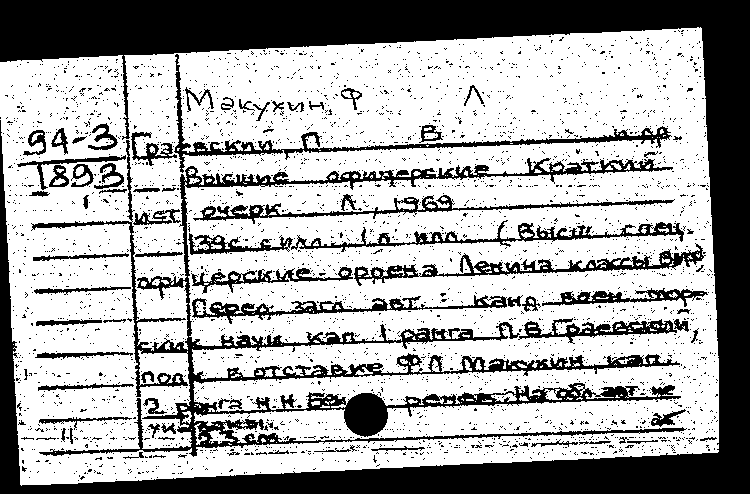 Макухин, Ф Л
94-3
1893
Граевский, П. В. и др.
Высшие офицерские. Краткий
ист. очерк. Л., 1969.
139с. с илл.; 1 л. илл. (Высш. спец.
офицерские ордена Ленина классы ВМФ)
Перед загл. авт.: канд. воен.-мор-
ских наук, кап. 1 ранга П.В.Граевский,
полк. в отставке Ф.Л. Макухин, кап.
2 ранга Н.Н. На обл. авт. не
указаны.
23 см.